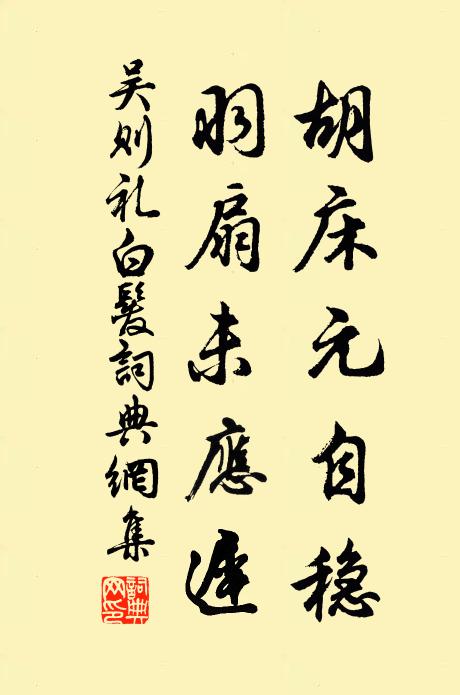 胡床元自穩
羽扇未應遲
吴则礼白髮詞典網集
詞典网印